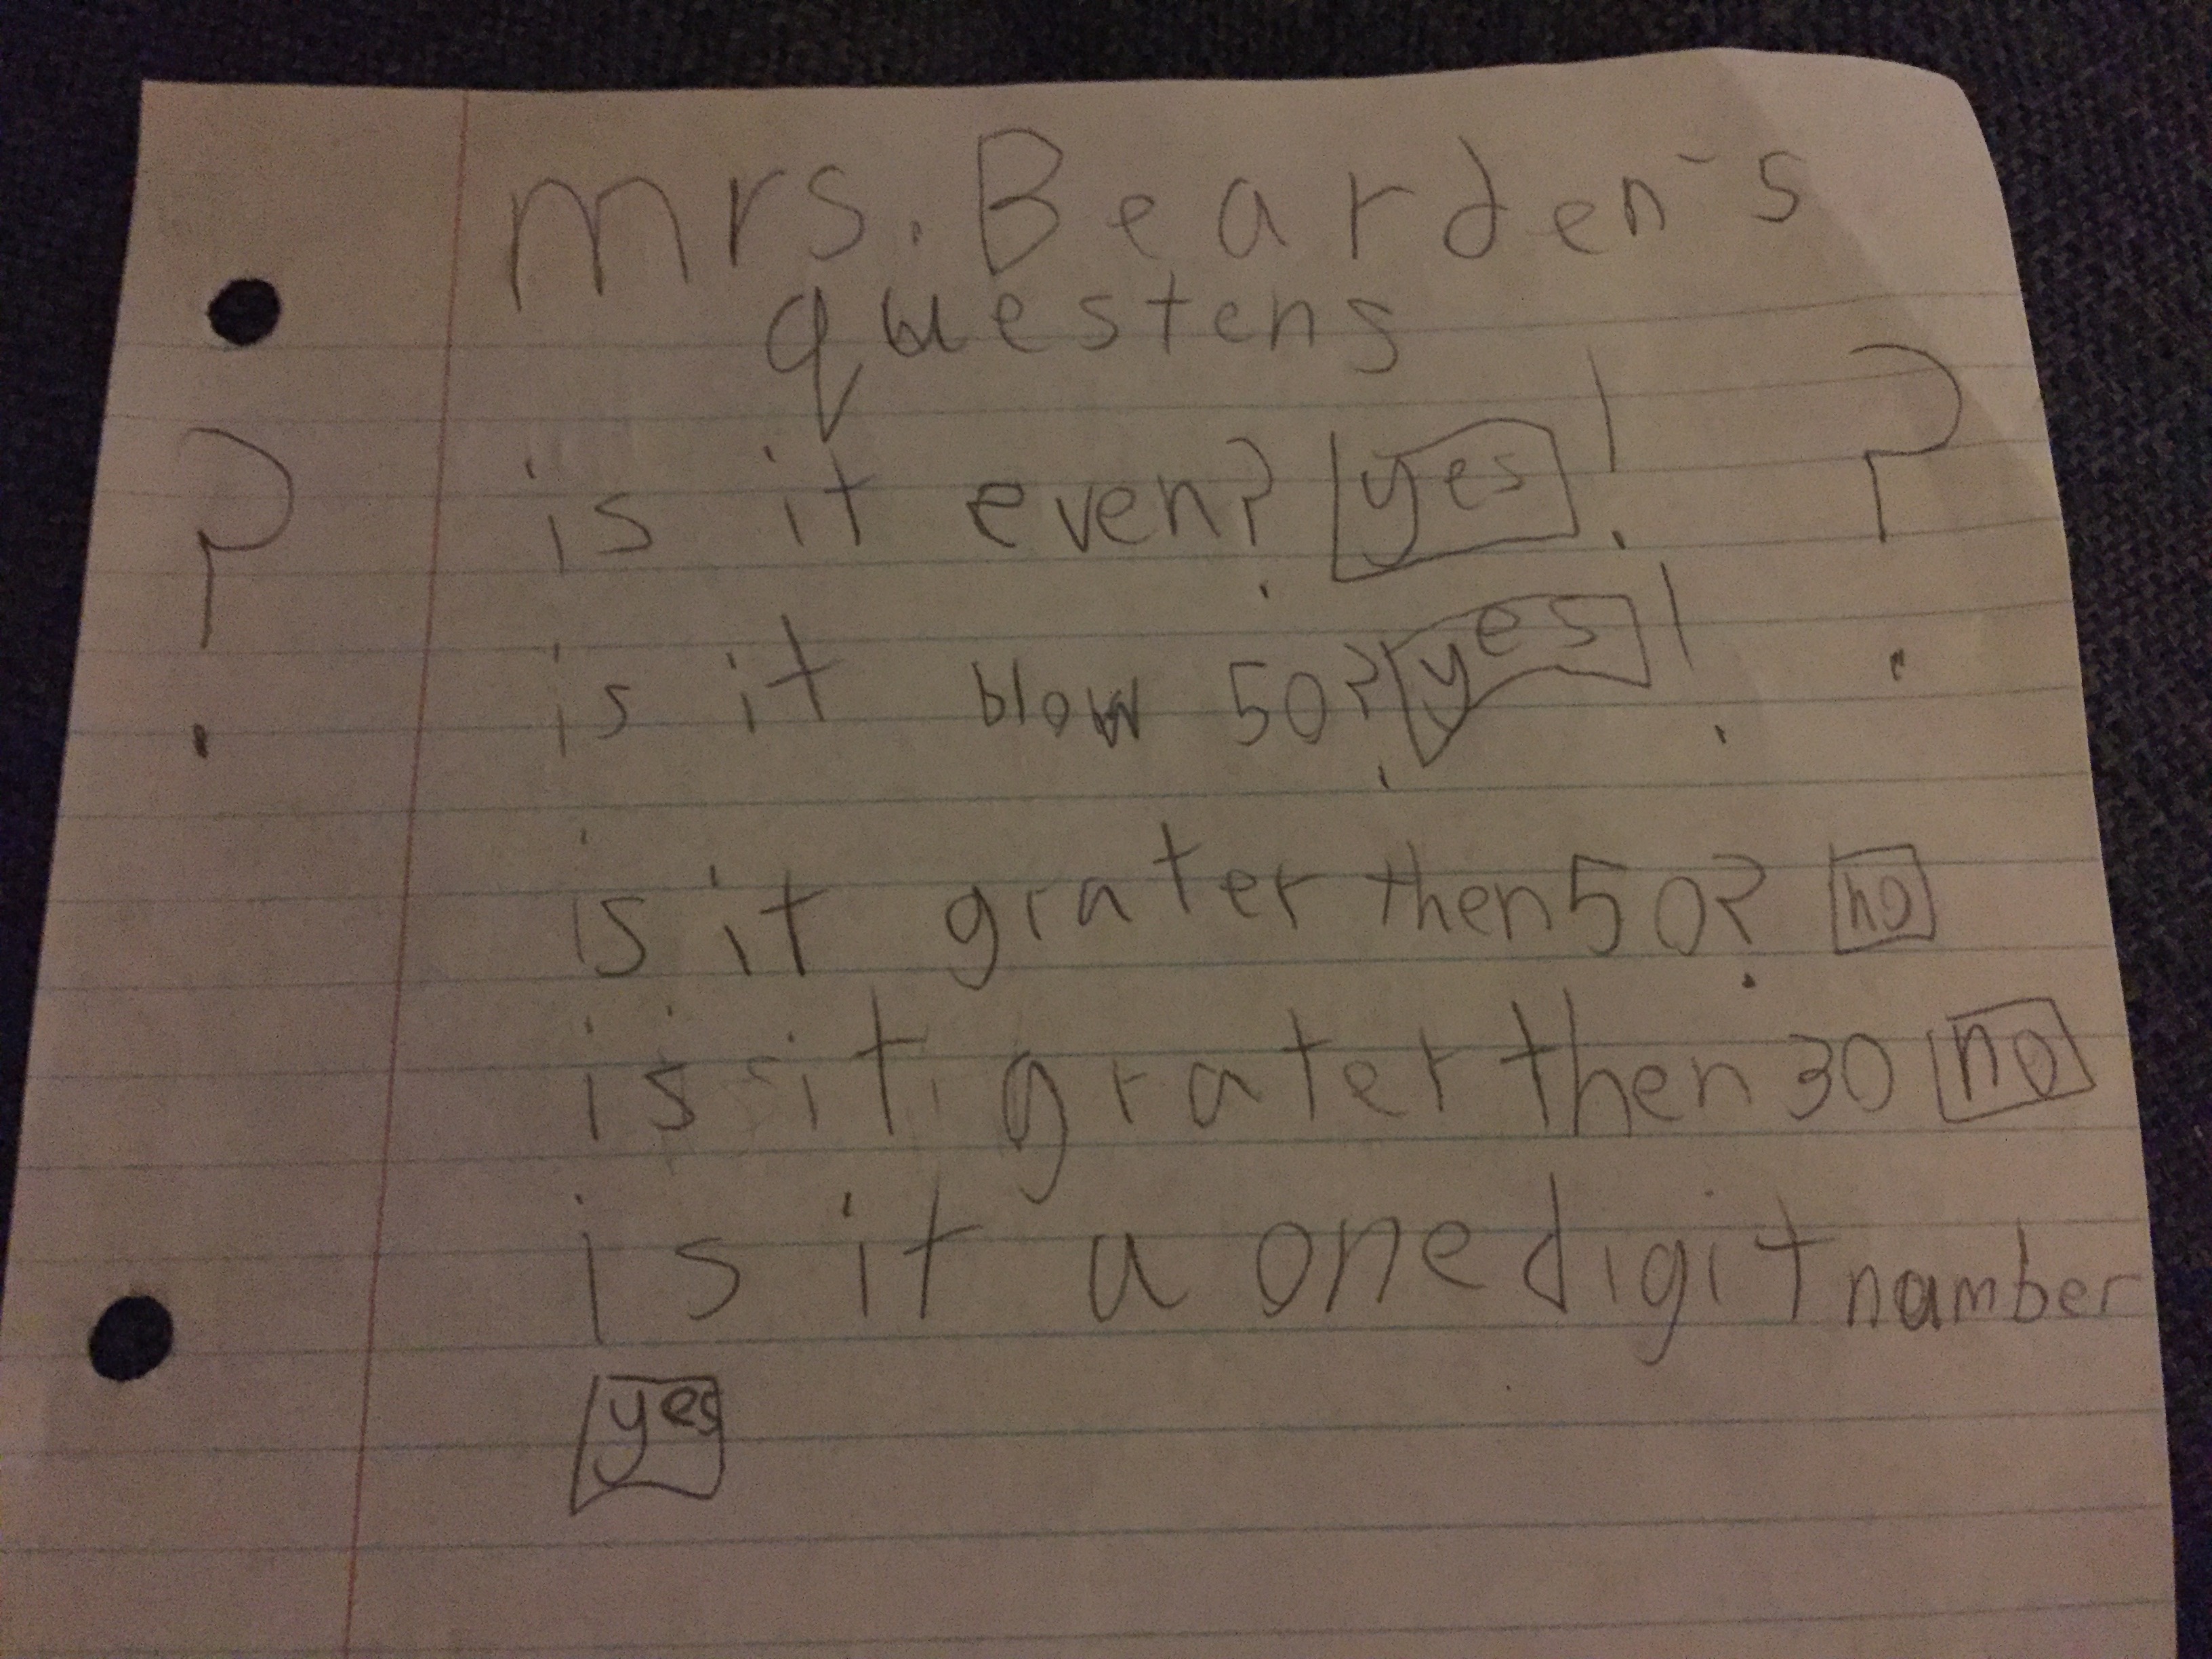 mrs. Bearden's
questens
? is it even? yes! ?
is it blow 50? yes!
is it grater then 50? no
is it grater then 30 no
is it a one digit namber
yes